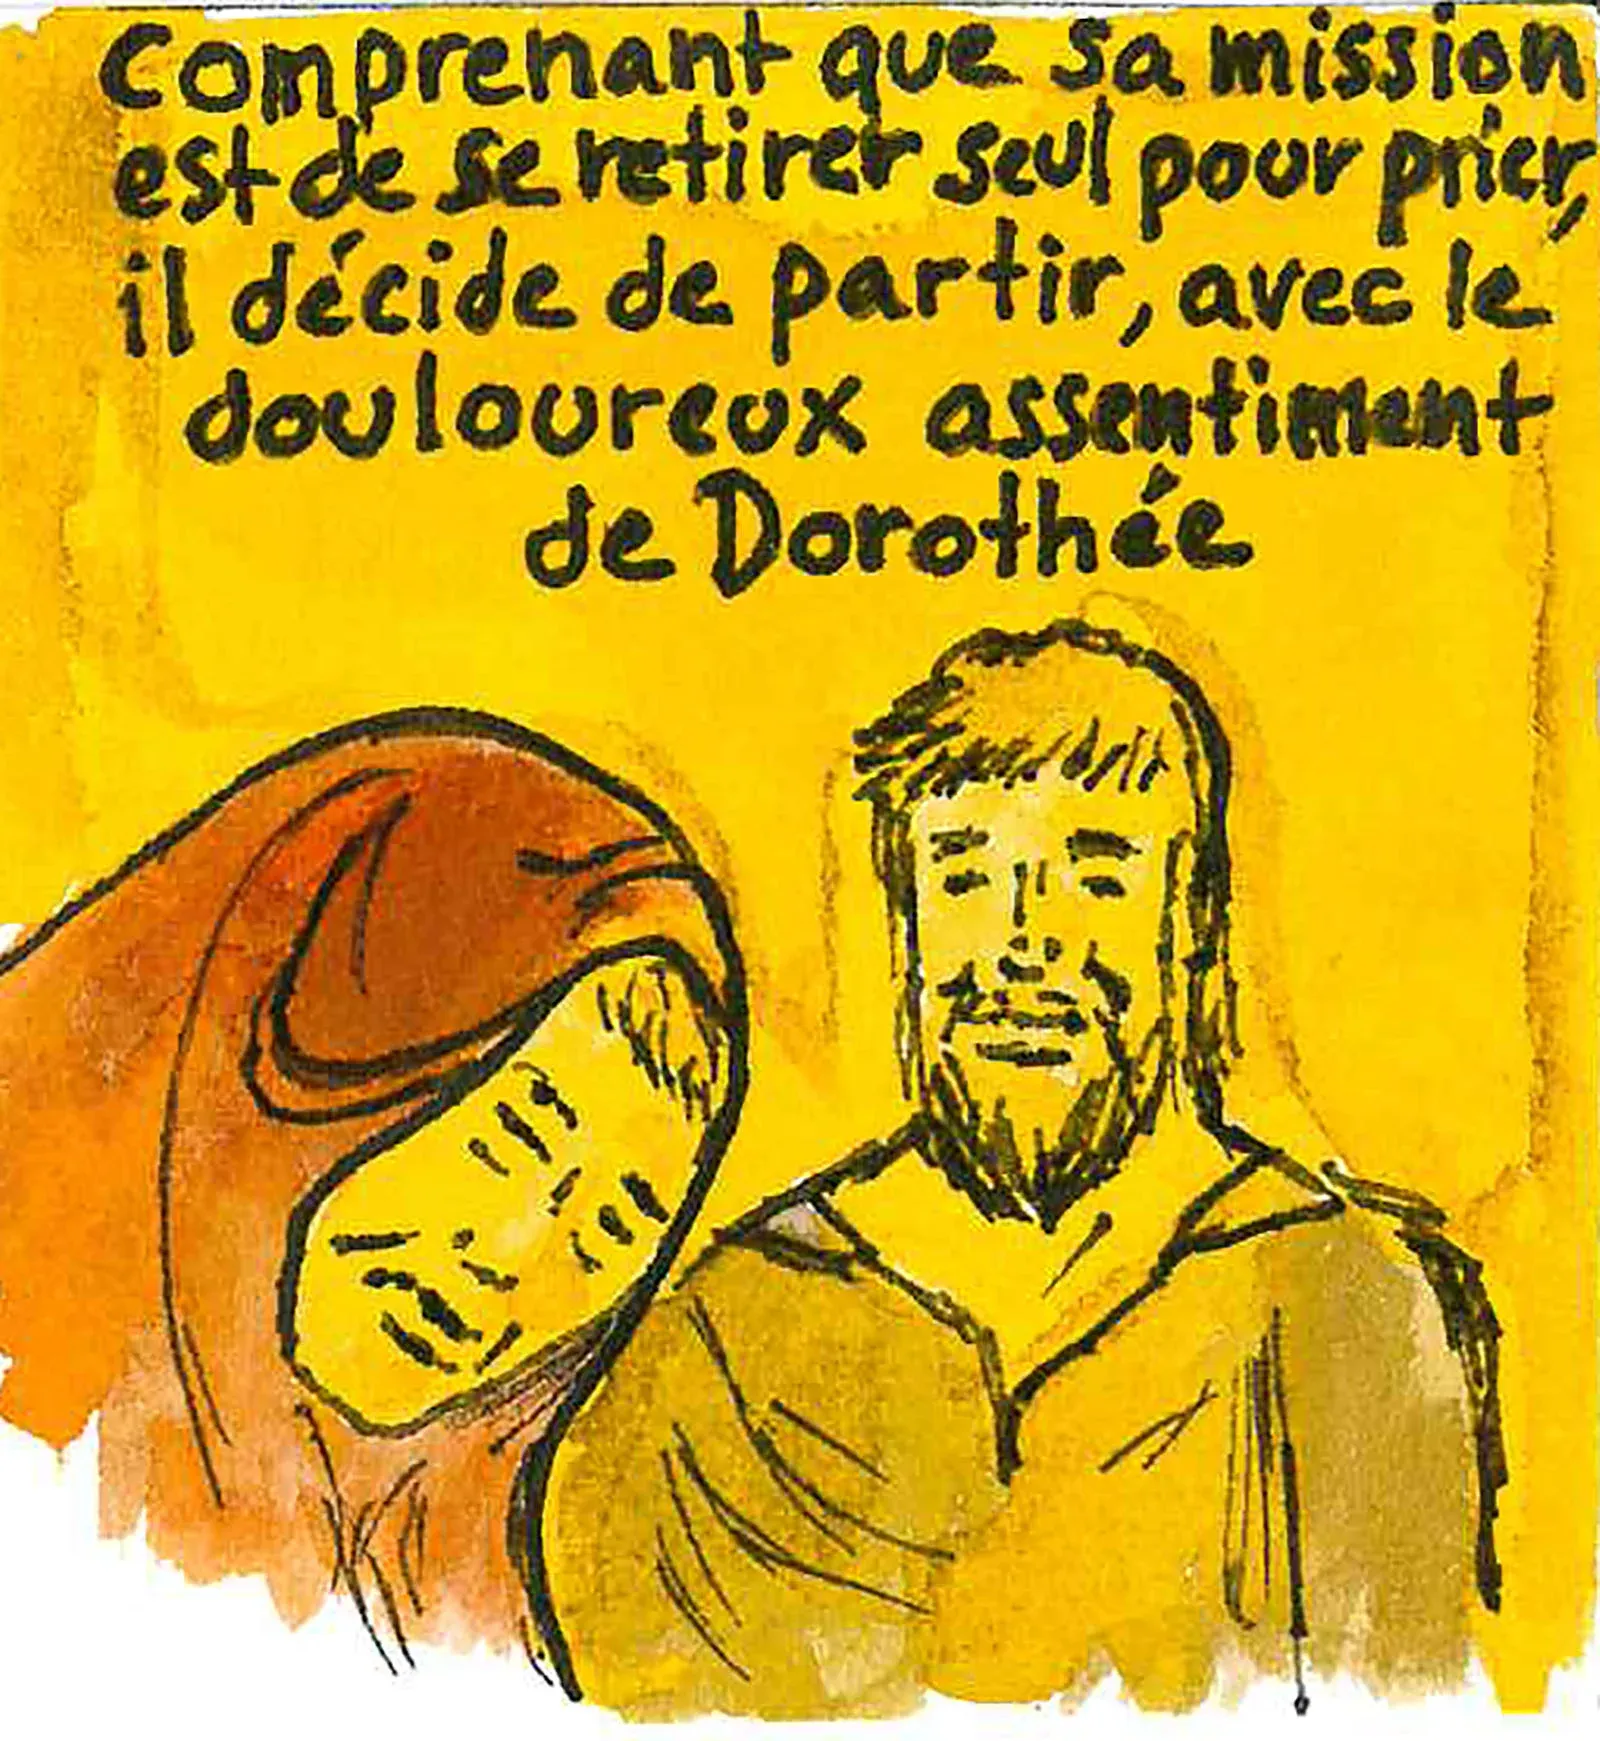 Comprenant que sa mission
est de se retirer seul pour prier,
il décide de partir, avec le
douloureux assentiment
de Dorothée